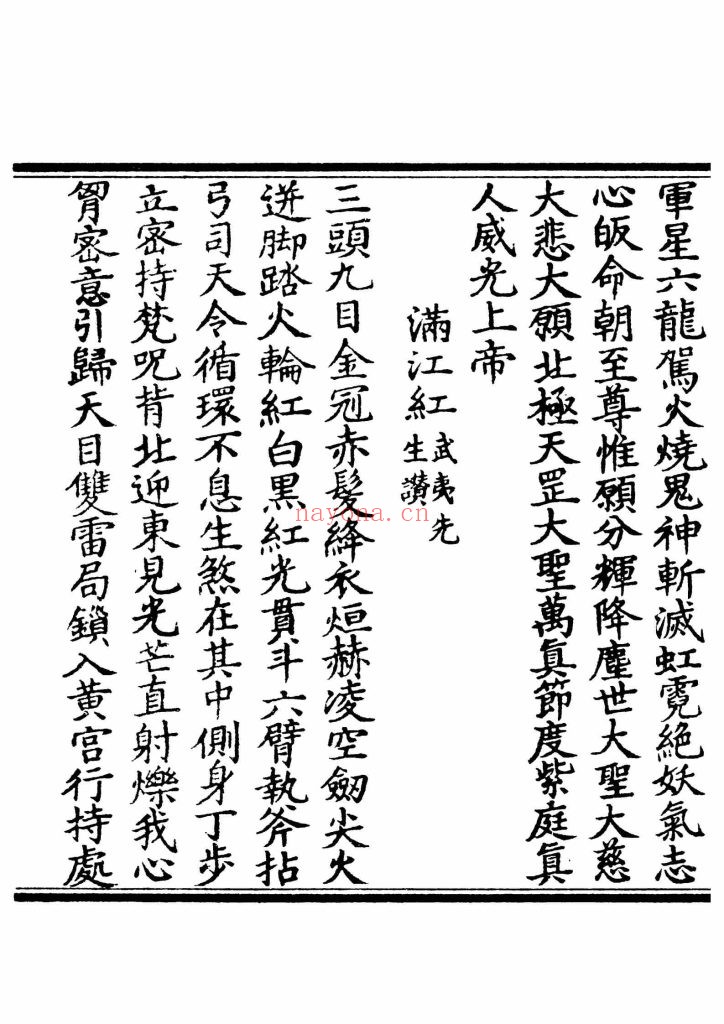 軍星六龍駕火燒鬼神斬滅虹霓絕妖氣志
心皈命朝至尊惟願分輝降塵世大聖大慈
大悲大願北極天罡大聖萬真節度紫庭真
人威光上帝
滿江紅武夷先生讚
三頭九目金冠赤髮絳衣烜赫凌空劒尖火
迸脚踏火輪紅白黑紅光貫斗六臂執斧拈
弓司天令循環不息生煞在其中側身丁步
立密持梵呪背北迎東見光芒直射爍我心
胷密意引歸天目雙雷局鎖入黃宮行持處
nayona.cn